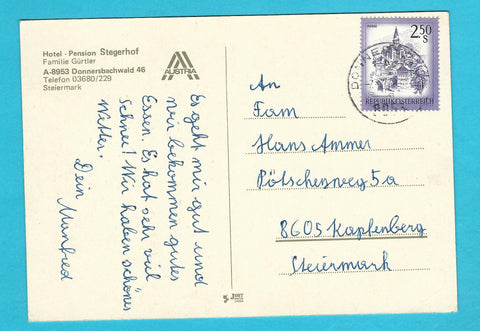 Hotel - Pension Stegerhof
Familie Gürtler
A-8953 Donnersbachwald 46
Telefon 03680/229
Steiermark
AUSTRIA
Es geht mir gut und
wir bekommen gutes
Essen. Es hat sehr viel
Schnee! Wir haben schönes
Wetter.
Dein
Manfred
2.50
S
REPUBLIK ÖSTERREICH
An
Fam
Hans Ammer
Pötschenweg 5a
8605 Kapfenberg
Steiermark